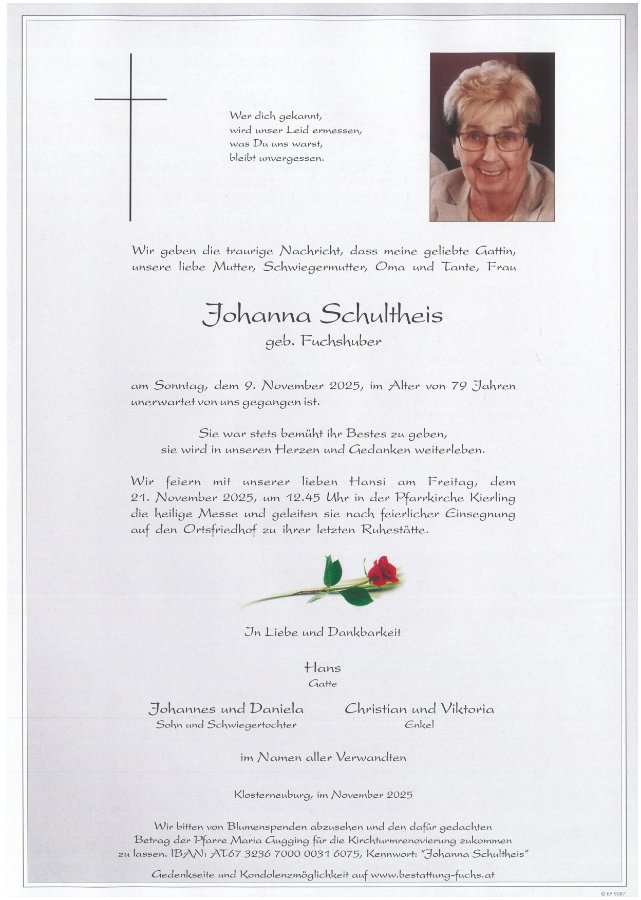 Wer dich gekannt,
wird unser Leid ermessen,
was Du uns warst,
bleibt unvergessen.
Wir geben die traurige Nachricht, dass meine geliebte Gattin,
unsere liebe Mutter, Schwiegermutter, Oma und Tante, Frau
Johanna Schultheis
geb. Fuchshuber
am Sonntag, dem 9. November 2025, im Alter von 79 Jahren
unerwartet von uns gegangen ist.
Sie war stets bemüht ihr Bestes zu geben,
sie wird in unseren Herzen und Gedanken weiterleben.
Wir feiern mit unserer lieben Hansi am Freitag, dem
21. November 2025, um 12.45 Uhr in der Pfarrkirche Kierling
die heilige Messe und geleiten sie nach feierlicher Einsegnung
auf den Ortsfriedhof zu ihrer letzten Ruhestätte.
In Liebe und Dankbarkeit
Hans
Gatte
Johannes und Daniela
Sohn und Schwiegertochter
Christian und Viktoria
Enkel
im Namen aller Verwandten
Klosterneuburg, im November 2025
Wir bitten von Blumenspenden abzusehen und den dafür gedachten
Betrag der Pfarre Maria Gugging für die Kirchturmrenovierung zukommen
zu lassen. IBAN: AT67 3236 7000 0031 6075, Kennwort: "Johanna Schultheis"
Gedenkseite und Kondolenzmöglichkeit auf www.bestattung-fuchs.at